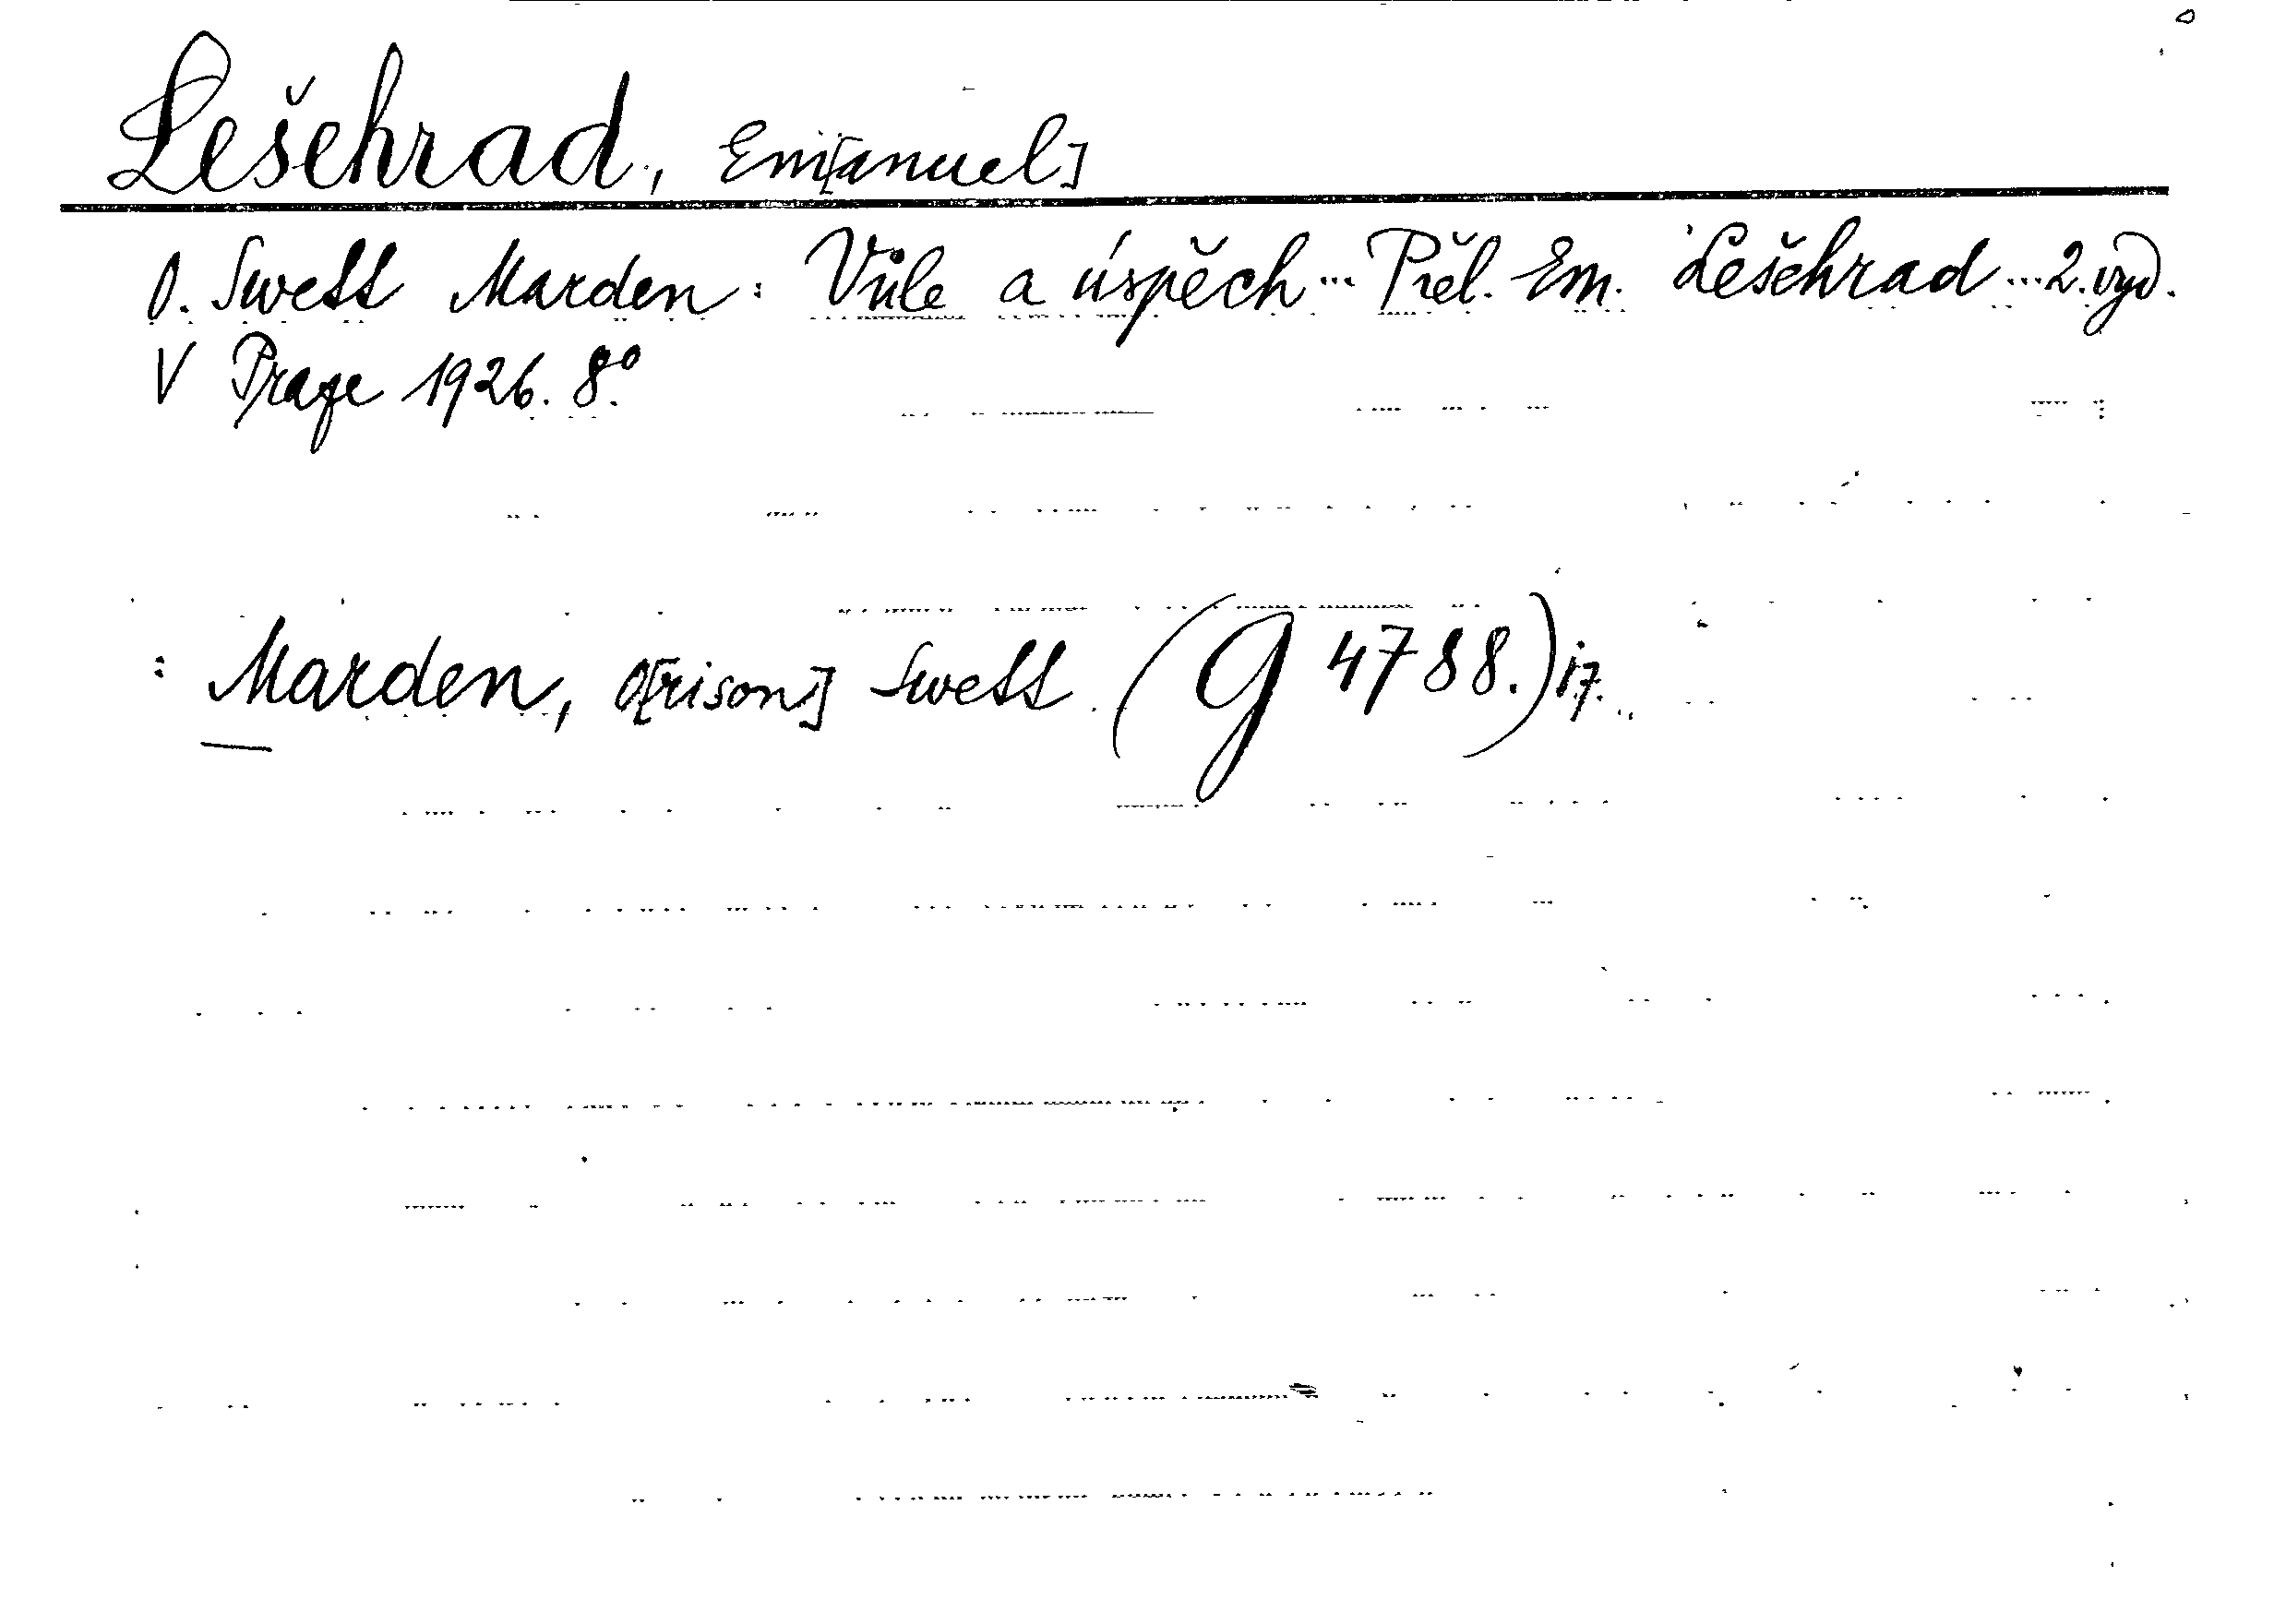 Lešehrad, Em[anuel]
O. Swett Marden: Vůle a úspěch... Přel. Em. Lešehrad...2.vyd.
V Praze 1926. 8°.
: Marden, O[rison] Swett (G 4788.)